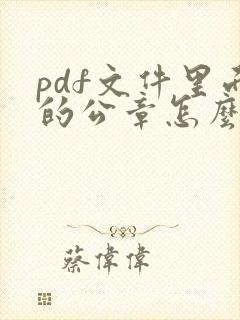 pdf文件里
的公章怎麼
蔡偉偉